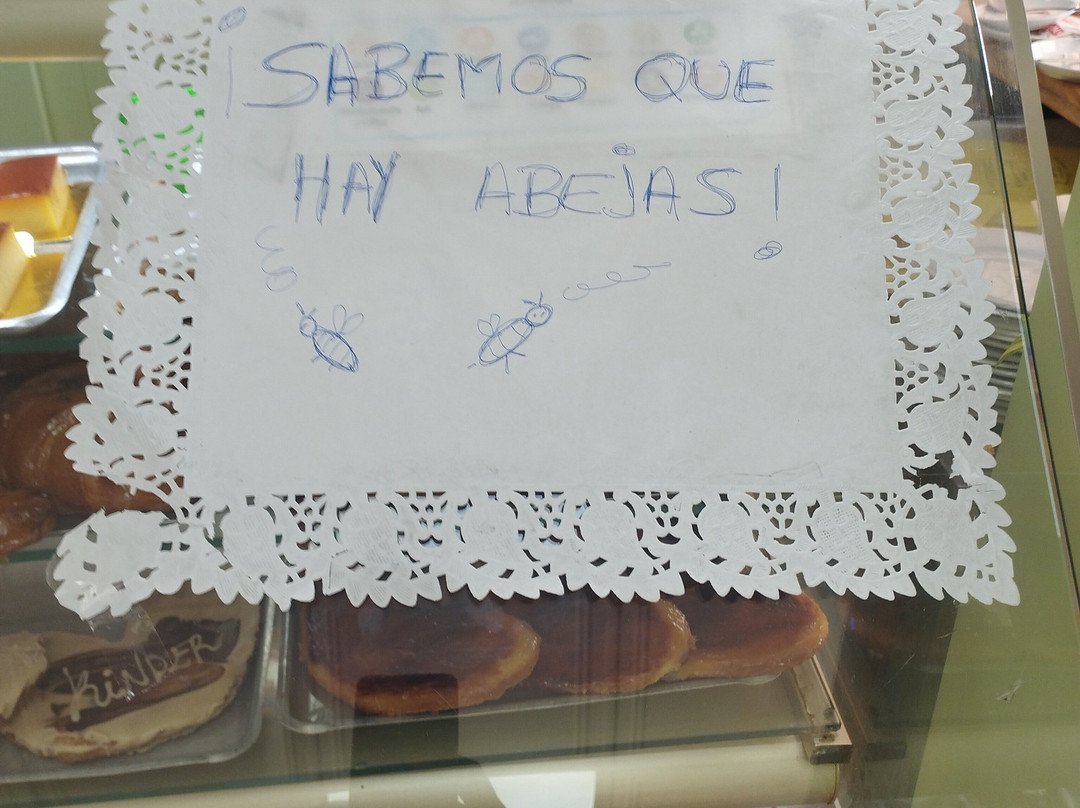 ¡SABEMOS QUE
HAY ABEJAS!
KiNDER